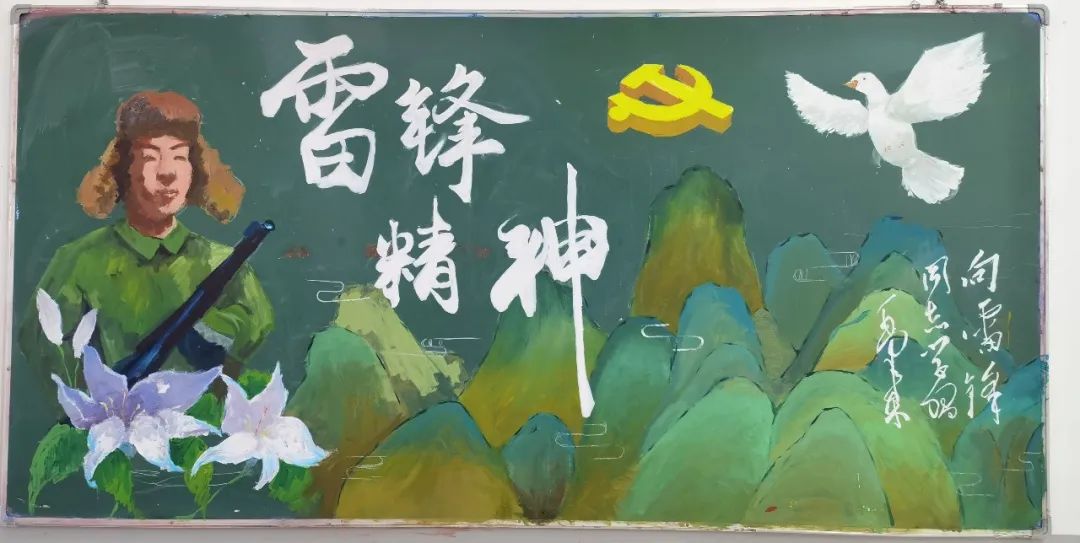 雷锋
精神
向雷锋
同志学习
毛泽东